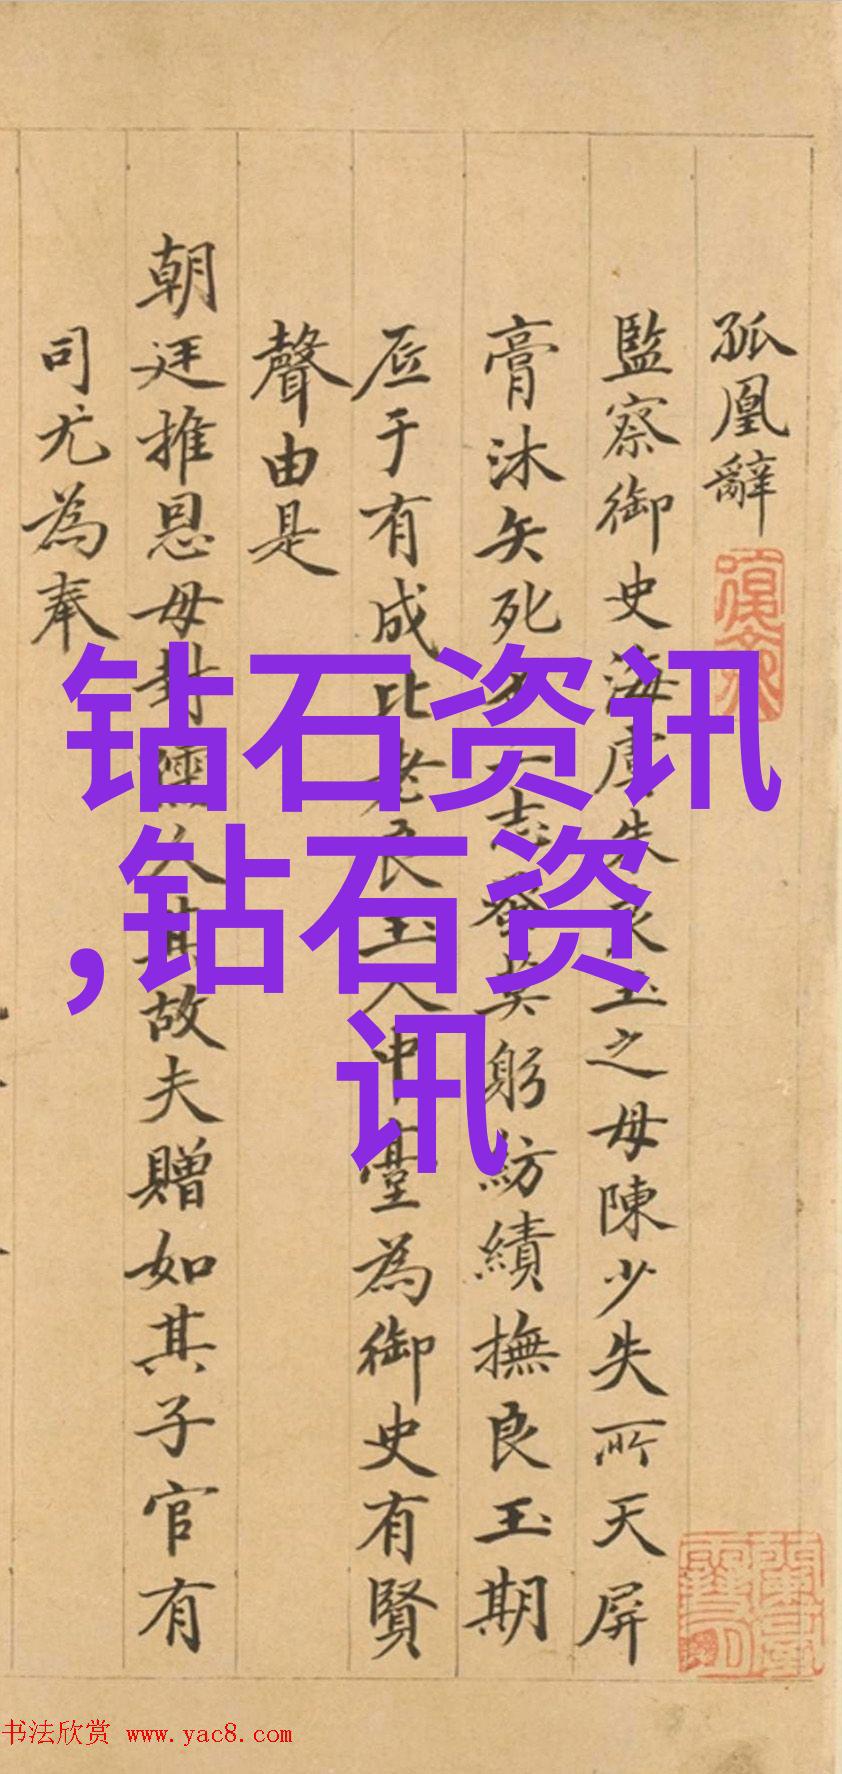 孤凰辭
監察御史海虞朱良玉之母陳少失所天屏
膏沐矢死
志
躬紡績撫良玉期
底于有成比老良玉入中臺為御史有賢
聲由是
朝廷推恩母封孺人其故夫贈如其子官有
司尤為奉
钻石资讯
,钻石资
讯
书法欣赏 www.yac8.com